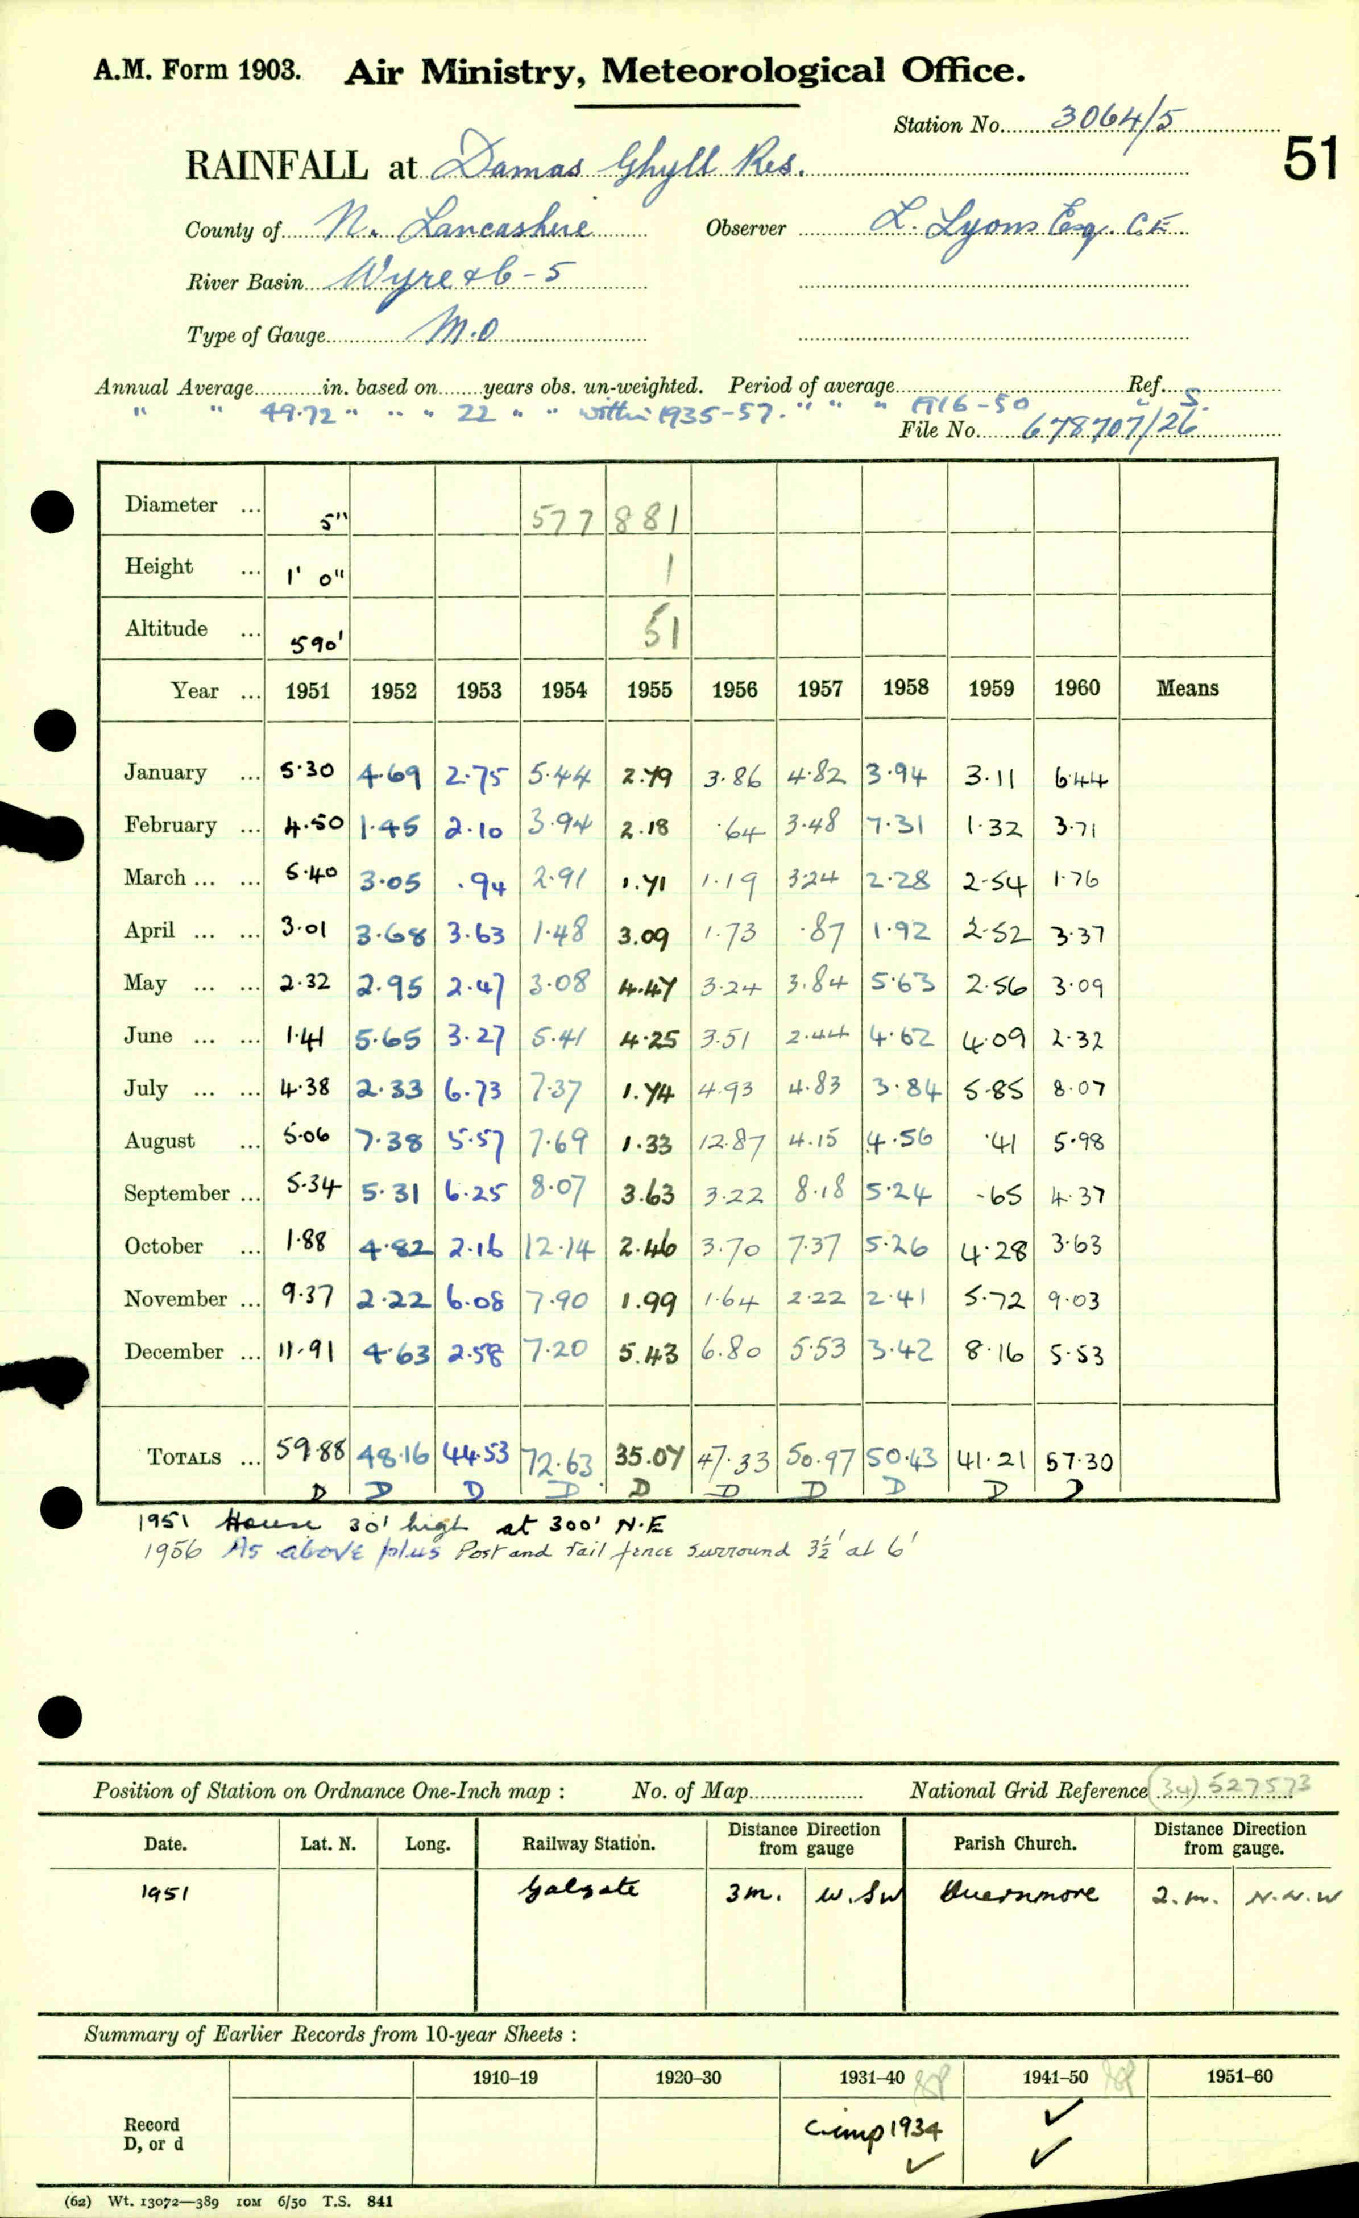 A.M. Form 1903. Air Ministry, Meteorological Office.
Station No. 3064/5
51
RAINFALL at Damas Ghyll Res.
County of N. Lancashire Observer L. Lyons Esq. C.E.
River Basin Wyre & 6-5
Type of Gauge M.O
Annual Average in. based on years obs. un-weighted. Period of average Ref. S.
" " 49.72 " " " 22 " " within 1935-57. " " " 1916-50 "
File No. 678707/26
Diameter ... 5" 577 881
Height ... 1' 0" 1
Altitude ... 590' 51
Year ... 1951 1952 1953 1954 1955 1956 1957 1958 1959 1960 Means
January ... 5.30 4.69 2.75 5.44 2.79 3.86 4.82 3.94 3.11 6.44
February ... 4.50 1.45 2.10 3.94 2.18 .64 3.48 7.31 1.32 3.71
March ... ... 5.40 3.05 .94 2.91 1.71 1.19 3.24 2.28 2.54 1.76
April ... ... 3.01 3.68 3.63 1.48 3.09 1.73 .87 1.92 2.52 3.37
May ... ... 2.32 2.95 2.47 3.08 4.47 3.24 3.84 5.63 2.56 3.09
June ... ... 1.41 5.65 3.27 5.41 4.25 3.51 2.44 4.62 4.09 2.32
July ... ... 4.38 2.33 6.73 7.37 1.74 4.93 4.83 3.84 5.85 8.07
August ... 5.06 7.38 5.57 7.69 1.33 12.87 4.15 4.56 .41 5.98
September ... 5.34 5.31 6.25 8.07 3.63 3.22 8.18 5.24 .65 4.37
October ... 1.88 4.82 2.16 12.14 2.46 3.70 7.37 5.26 4.28 3.63
November ... 9.37 2.22 6.08 7.90 1.99 1.64 2.22 2.41 5.72 9.03
December ... 11.91 4.63 2.58 7.20 5.43 6.80 5.53 3.42 8.16 5.53
TOTALS ... 59.88 48.16 44.53 72.63 35.07 47.33 50.97 50.43 41.21 57.30
D D D D D D D D D D
1951 House 30' high at 300' N.E
1956 As above plus Post and rail fence surround 3½' at 6'
Position of Station on Ordnance One-Inch map : No. of Map National Grid Reference (34) 527573
Date. Lat. N. Long. Railway Station. Distance from Direction gauge Parish Church. Distance from Direction gauge.
1951 Galgate 3m. W.SW Quernmore 2.m. N.N.W
Summary of Earlier Records from 10-year Sheets :
1910–19 1920–30 1931–40 1941–50 1951–60
Record D, or d Comp 1934 ✓ ✓ ✓
(62) Wt. 13072—389 10M 6/50 T.S. 841